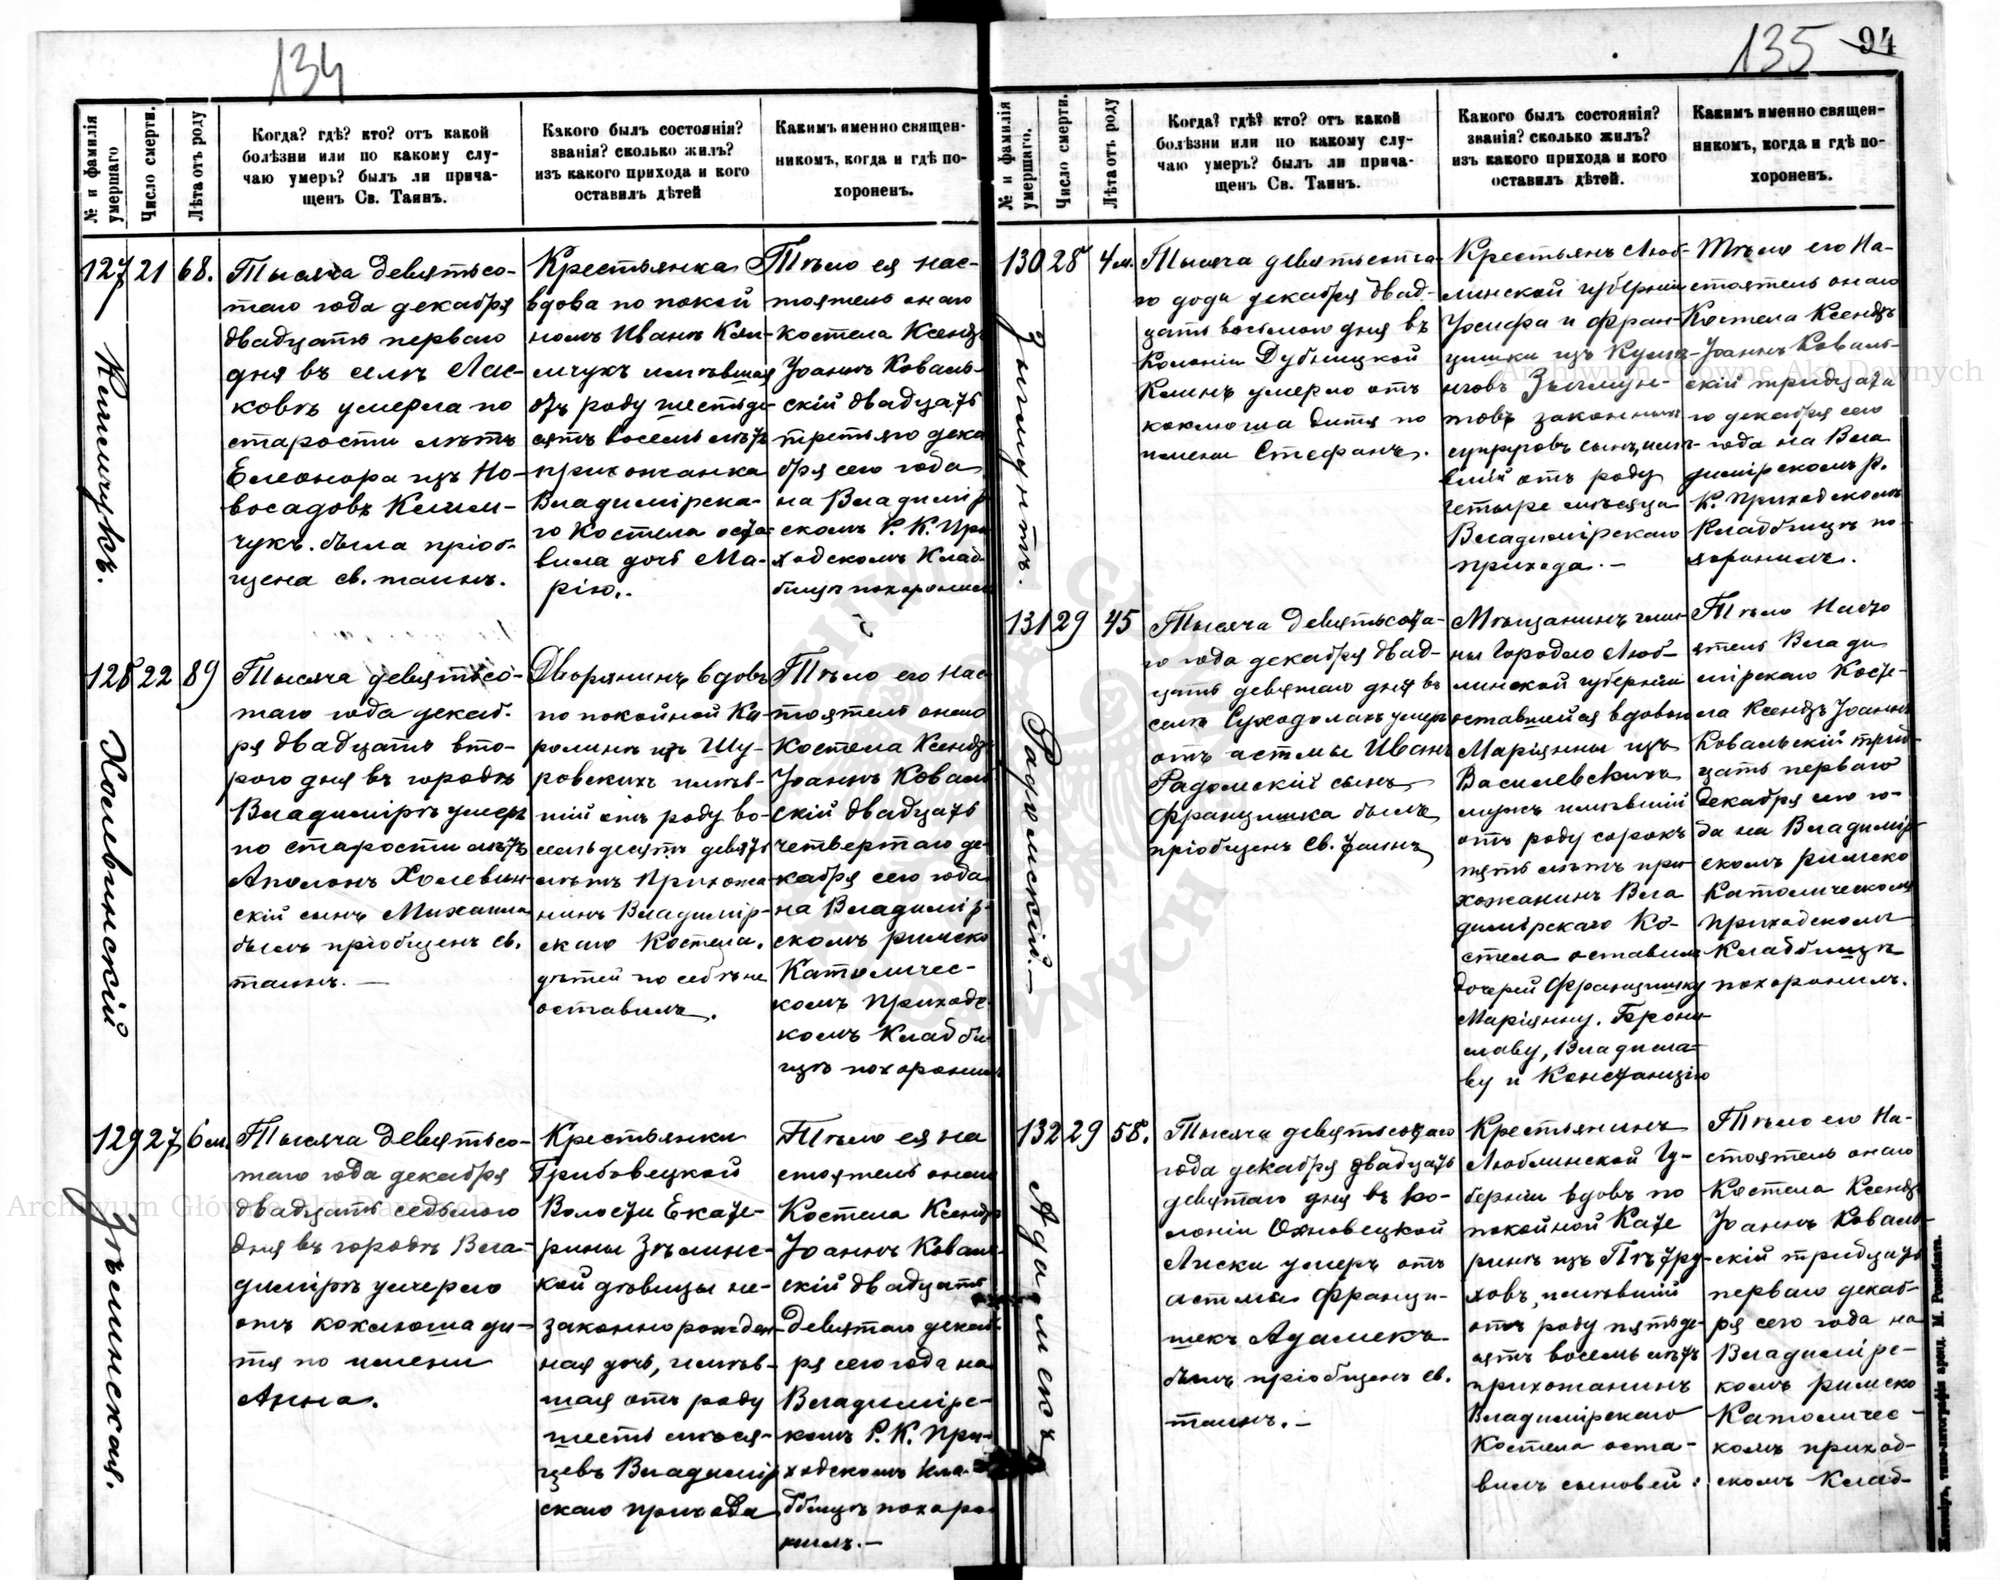 134
№ и фамилія умершаго
Число смерти.
Лѣта отъ роду
Когда? гдѣ? кто? отъ какой
болѣзни или по какому слу-
чаю умеръ? былъ ли прича-
щенъ Св. Таинъ.
Какого былъ состоянія?
званія? сколько жилъ?
изъ какого прихода и кого
оставилъ дѣтей
Какимъ именно священ-
никомъ, когда и гдѣ по-
хороненъ.
127 21 68.
Тысяча девятьсо-
таго года декабря
двадцать перваго
дня въ селѣ Лас-
ковѣ умерла по
старости лѣтъ
Елеонора изъ Но-
восадовъ
чукъ. была пріоб-
щена св. таинъ.
Крестьянка
вдова по покой
номъ Иванѣ
имѣвшая
отъ роду шестьде-
сятъ восемь лѣтъ
прихожанка
Владимірска-
го Костела оста-
вила дочь Ма-
рію.
Тѣло ея нас-
тоятель онаго
костела Ксендзъ
Іоаннъ Коваль-
скій двадцать
третьяго дека
бря сего года
на Владимір
скомъ Р. К. При
ходскомъ Клад-
бищѣ похоронилъ
128 22 89
Холевинскій
Тысяча девятьсо-
таго года декаб-
ря двадцать вто-
рого дня въ городѣ
Владимірѣ умеръ
по старости лѣтъ
Аполонъ Холевин-
скій сынъ Михаила
былъ пріобщенъ св.
таинъ. —
Дворянинъ вдовъ
по покойной Ка-
ролинѣ изъ Шу-
ровскихъ имѣв-
шій отъ роду во-
семьдесятъ девять
лѣтъ Прихожа-
нинъ Владимір-
скаго Костела.
дѣтей по себѣ не
оставилъ.
Тѣло его Нас-
тоятель онаго
Костела Ксендзъ
Іоаннъ Коваль
скій двадцать
четвертаго де-
кабря сего года
на Владимір-
скомъ римско
Католичес-
комъ Приходс-
комъ Кладби-
щѣ похоронилъ
129 27 6 м.
Зѣлинская.
Тысяча девятьсо-
таго года декабря
двадцать седьмого
дня въ городѣ Вла-
димірѣ умерло
отъ коклюша ди-
тя по имени
Анна.
Крестьянки
Грибовецкой
Волости Екате-
рины Зѣлинс-
кой дѣвицы не-
законнорожден-
ная дочь, имѣв-
шая отъ роду
шесть мѣся-
цевъ Владимір
скаго прихода
Тѣло ея на
стоятель онаго
Костела Ксендзъ
Іоаннъ Коваль-
скій двадцать
девятаго декаб-
ря сего года на
Владимірс-
комъ Р. К. При-
ходскомъ Кла-
дбищѣ похоро-
нилъ. —
135 94
№ и фамилія умершаго.
Число смерти.
Лѣта отъ роду
Когда? гдѣ? кто? отъ какой
болѣзни или по какому слу-
чаю умеръ? былъ ли прича-
щенъ Св. Таинъ.
Какого былъ состоянія?
званія? сколько жилъ?
изъ какого прихода и кого
оставилъ дѣтей.
Какимъ именно священ-
никомъ, когда и гдѣ по-
хороненъ.
130 28 4 м.
Зыгмунтъ.
Тысяча девятьсота-
го года декабря двад-
цать восьмого дня въ
Колоніи Дубницкой
умерло отъ
коклюша дитя по
имени Стефанъ.
Крестьянъ Люб-
линской губерніи
Іосифа и Фран-
цишки изъ
Зыгмун-
товъ законныхъ
супруговъ сынъ, имѣ-
вшій отъ роду
четыре мѣсяца
Владимірскаго
прихода. —
Тѣло его На-
стоятель онаго
Костела Ксендзъ
Іоаннъ Коваль-
скій тридцата
го декабря сего
года на Вла
димірскомъ Р.
К. Приходскомъ
Кладбищѣ по-
хоронилъ.
131 29 45
Радомскій. —
Тысяча девятьсота-
го года декабря двад-
цать девятаго дня въ
селѣ Суходолахъ умеръ
отъ астмы Иванъ
Радомскій сынъ
Францишка былъ
пріобщенъ Св. Таинъ
Мѣщанинъ гми-
ны Городло Люб-
линской губерніи
оставшійся вдовы
Маріянны изъ
Василевскихъ
мужъ имѣвшій
отъ роду сорокъ
пять лѣтъ при-
хожанинъ Вла
димірскаго Ко-
стела оставилъ
дочерей Францишку
Маріянну, Брони
славу, Владисла-
ву и Констанцію
Тѣло Насто
ятель Влади
мірскаго Косте-
ла Ксендзъ Іоаннъ
Ковальскій трид-
цать перваго
декабря сего го-
да на Владимір-
скомъ римско
Католическомъ
приходскомъ
Кладбищѣ
похоронилъ.
132 29 58.
Адамекъ
Тысяча девятьсотаго
года декабря двадцать
девятаго дня въ Ко-
лоніи
умеръ отъ
астмы Франци-
шекъ Адамекъ
былъ пріобщенъ св.
таинъ. —
Крестьянинъ
Люблинской Гу-
берніи вдовъ по
покойной Кате
ринѣ изъ Пѣтру-
ховъ, имѣвшій
отъ роду пятьде-
сятъ восемь лѣтъ
прихожанинъ
Владимірскаго
Костела оста-
вилъ сыновей:
Тѣло его На-
стоятель онаго
Костела Ксендзъ
Іоаннъ Коваль-
скій тридцать
перваго декаб-
ря сего года на
Владимірс-
комъ римско
Католичес-
комъ приход-
скомъ Клад-
Archiwum Główne Akt Dawnych
Archiwum Główne Akt Dawnych